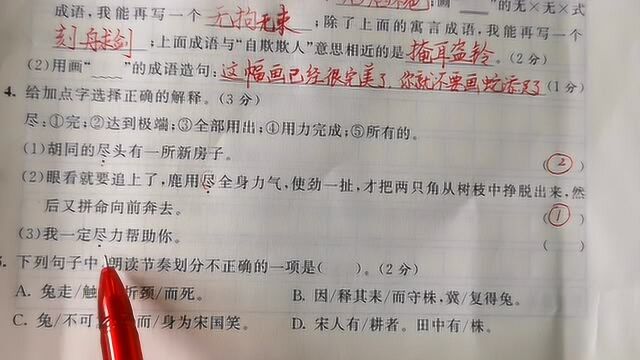 成语,我能再写一个 无拘无束 ;画“ ”的无×无×式
刻舟求剑 ;除了上面的寓言成语,我能再写一个
;上面成语与“自欺欺人”意思相近的是 掩耳盗铃 。(2分)
(2)用画“ ”的成语造句: 这幅画已经很完美了,你就不要画蛇添足了 (1分)
4. 给加点字选择正确的解释。(3分)
尽:①完;②达到极端;③全部用出;④用力完成;⑤所有的。
(1)胡同的尽头有一所新房子。 (2)
(2)眼看就要追上了,鹿用尽全身力气,使劲一扯,才把两只角从树枝中挣脱出来,然
后又拼命向前奔去。 (1)
(3)我一定尽力帮助你。 ( )
下列句子中,朗读节奏划分不正确的一项是( )。(2分)
A. 兔走/触 折颈/而死。 B. 因/释其耒/而守株,冀/复得兔。
C. 兔/不可 而/身为宋国笑。 D. 宋人有/耕者。田中有/株。